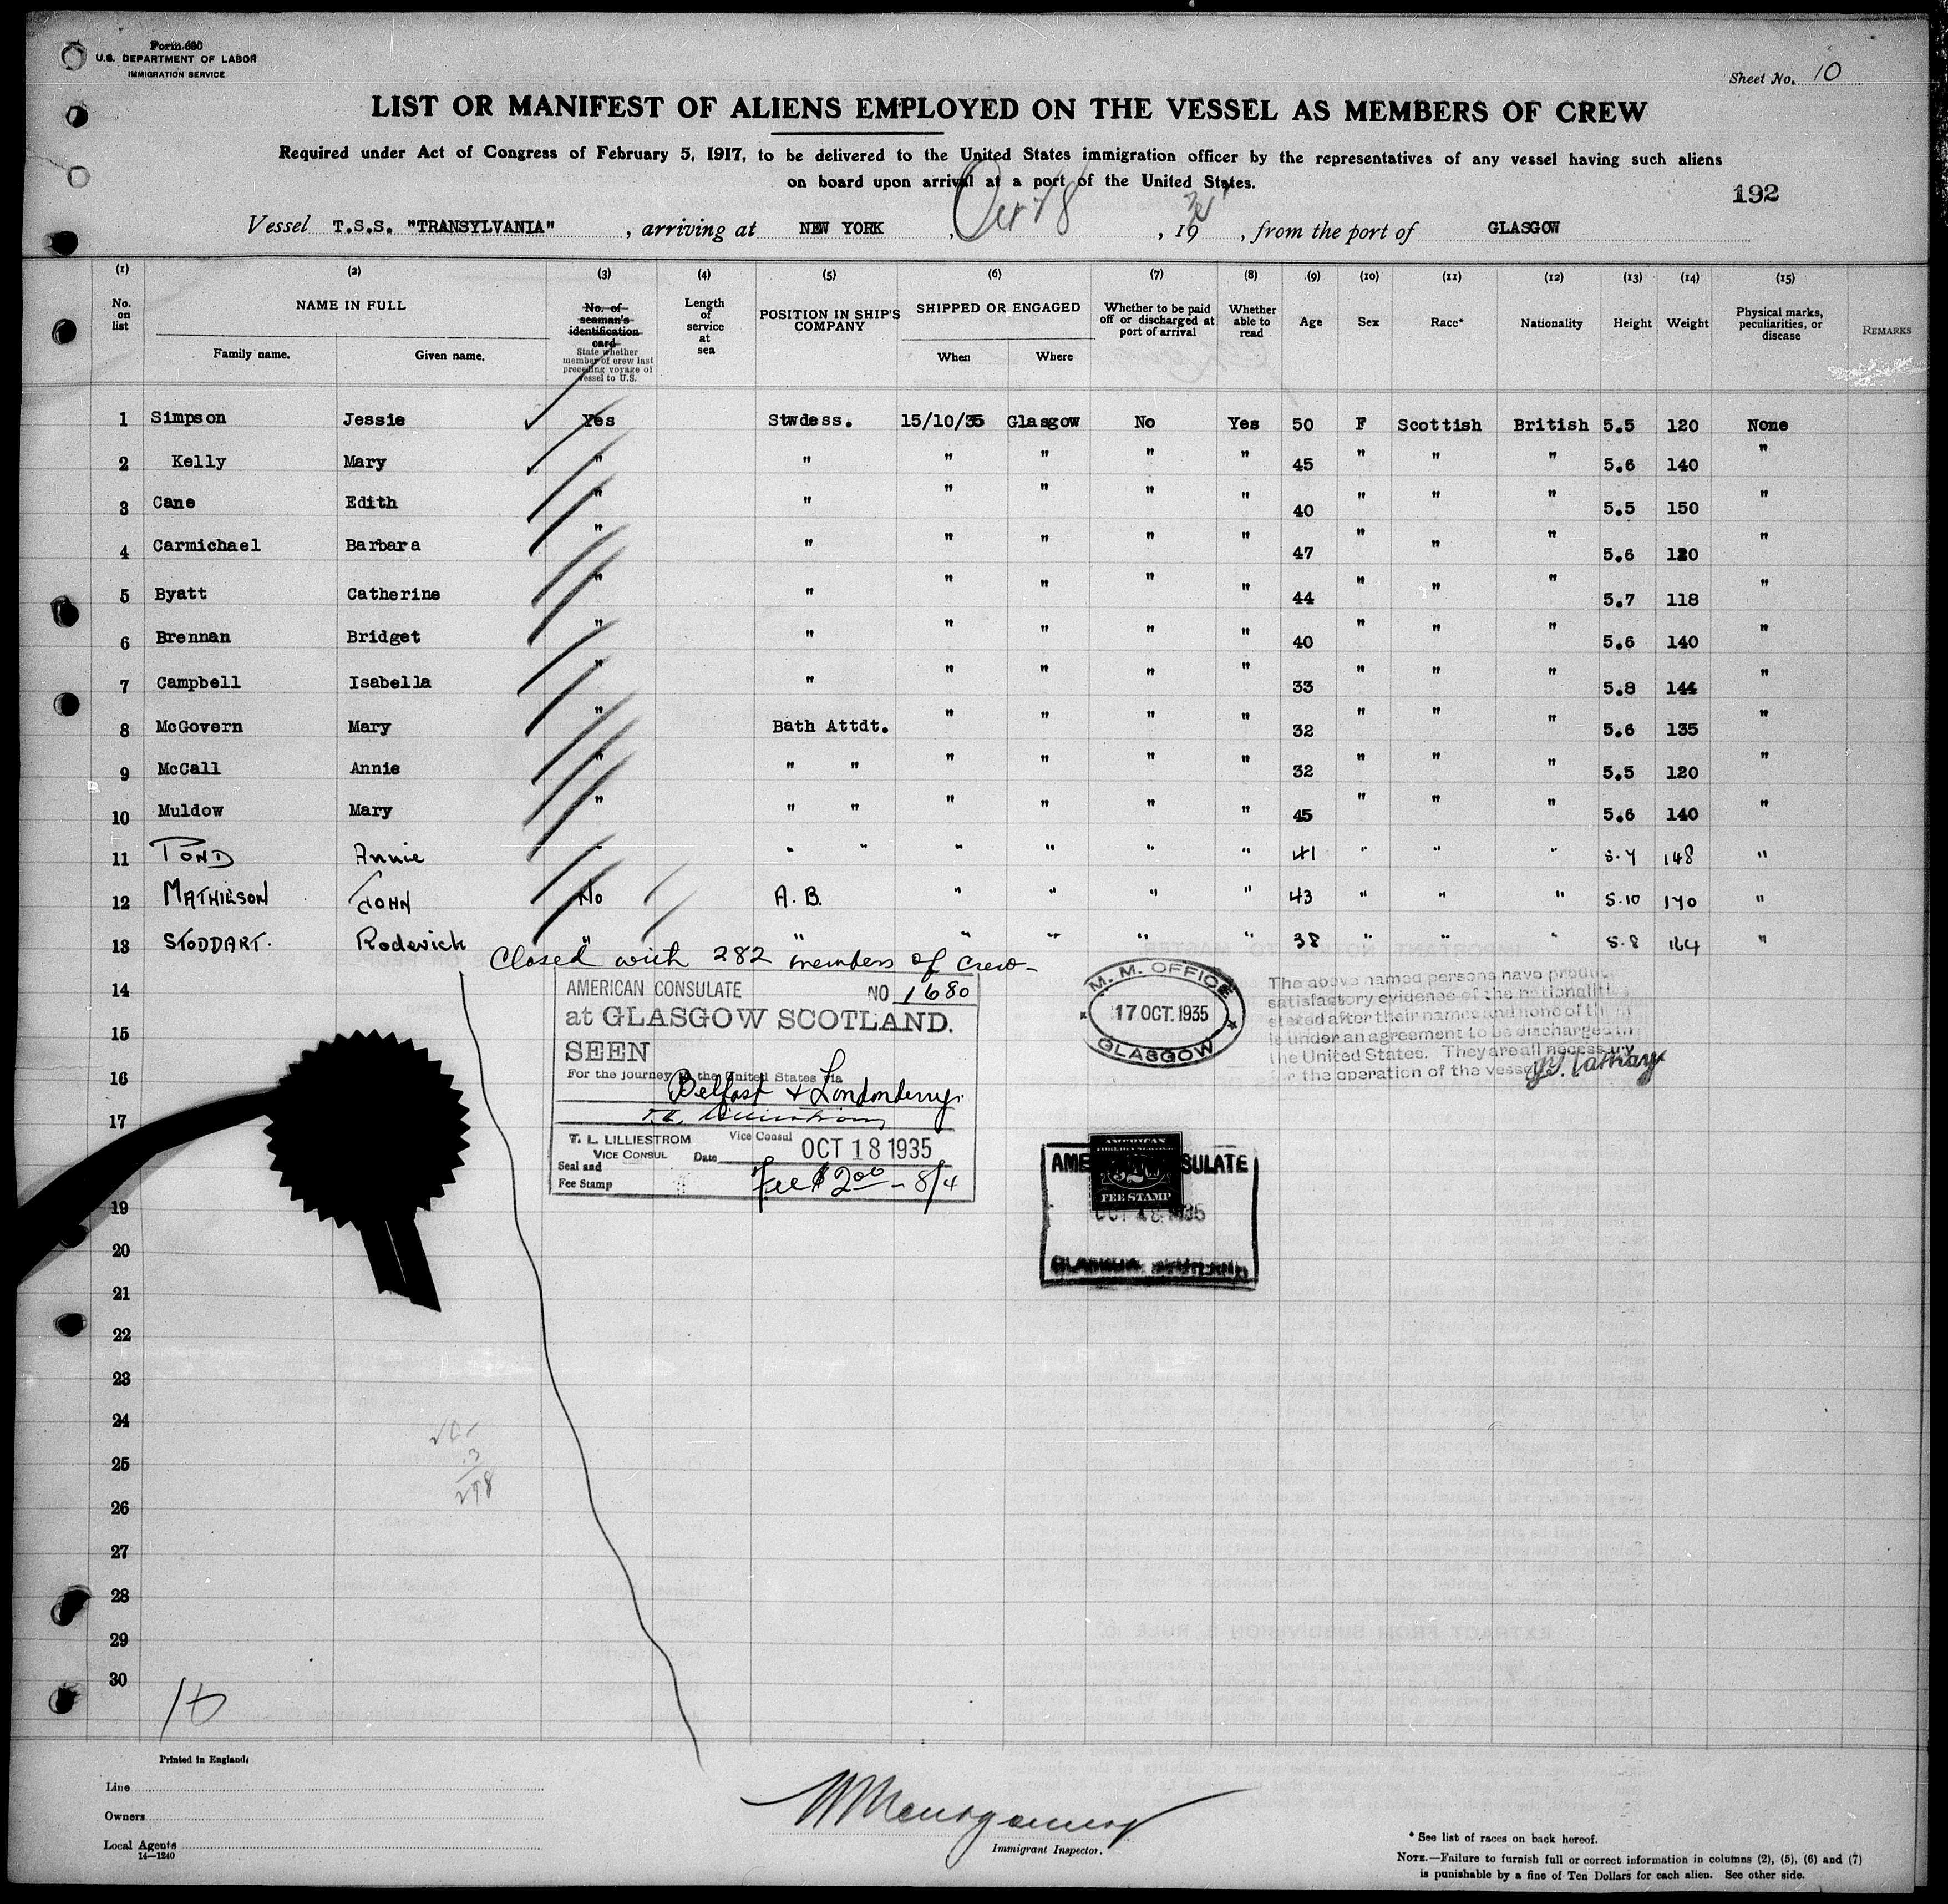 Form 680
U.S. DEPARTMENT OF LABOR
IMMIGRATION SERVICE
Sheet No. 10
LIST OR MANIFEST OF ALIENS EMPLOYED ON THE VESSEL AS MEMBERS OF CREW
Required under Act of Congress of February 5, 1917, to be delivered to the United States immigration officer by the representatives of any vessel having such aliens
on board upon arrival at a port of the United States.
192
Vessel T.S.S. "TRANSYLVANIA", arriving at NEW YORK, Oct , 19 , from the port of GLASGOW
(1) (2) (3) (4) (5) (6) (7) (8) (9) (10) (11) (12) (13) (14) (15)
No. on list NAME IN FULL Family name. Given name. No. of seaman's identification card State whether member of crew last preceding voyage of vessel to U.S. Length of service at sea POSITION IN SHIP'S COMPANY SHIPPED OR ENGAGED When Where Whether to be paid off or discharged at port of arrival Whether able to read Age Sex Race* Nationality Height Weight Physical marks, peculiarities, or disease REMARKS
1 Simpson Jessie Yes Stwdess. 15/10/35 Glasgow No Yes 50 F Scottish British 5.5 120 None
2 Kelly Mary " " " " " " 45 " " " 5.6 140 "
3 Cane Edith " " " " " " 40 " " " 5.5 150 "
4 Carmichael Barbara " " " " " " 47 " " " 5.6 120 "
5 Byatt Catherine " " " " " " 44 " " " 5.7 118 "
6 Brennan Bridget " " " " " " 40 " " " 5.6 140 "
7 Campbell Isabella " " " " " " 33 " " " 5.8 144 "
8 McGovern Mary " Bath Attdt. " " " " 32 " " " 5.6 135 "
9 McCall Annie " " " " " " " 32 " " " 5.5 120 "
10 Muldow Mary " " " " " " " 45 " " " 5.6 140 "
11 POND Annie " " " " " " " 41 " " " 5.7 148 "
12 MATHIESON JOHN No A.B. " " " " 43 " " " 5.10 170 "
13 STODDART. Roderick " " " " " " 38 " " " 5.8 164 "
Closed with 282 members of crew
14
15
16
17
19
20
21
22
23
24
25
26
27
28
29
30
AMERICAN CONSULATE NO 1680
at GLASGOW SCOTLAND.
SEEN
For the journey to the United States via
Belfast & Londonderry.
T. L. LILLIESTROM Vice Consul
VICE CONSUL Date OCT 18 1935
Seal and
Fee Stamp Fee $2.00 - 8/4
M. M. OFFICE
17 OCT. 1935
GLASGOW
The above named persons have produced
satisfactory evidence of the nationalities
stated after their names and none of them
is under an agreement to be discharged in
the United States. They are all necessary
for the operation of the vessel
AMERICAN CONSULATE
AMERICAN
FEE STAMP
OCT 18 1935
GLASGOW, SCOTLAND
10
Printed in England.
Line
Owners
Local Agents
14—1240
W Montgomery
Immigrant Inspector.
* See list of races on back hereof.
NOTE.—Failure to furnish full or correct information in columns (2), (5), (6) and (7)
is punishable by a fine of Ten Dollars for each alien. See other side.